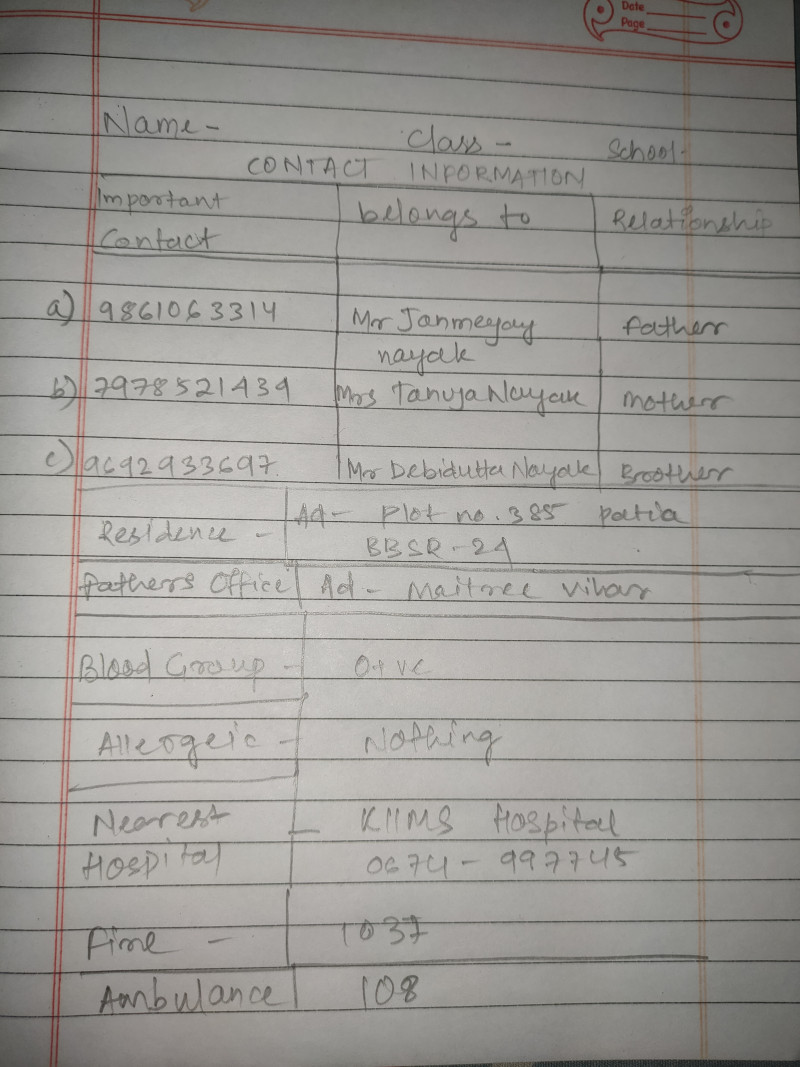 Date
Page
Name - Class - School -
CONTACT INFORMATION
Important Contact belongs to Relationship
a) 9861063314 Mr Janmegay nayak father
b) 7978521434 Mrs Tanuja Nayak mother
c) 9692933697 Mr Debidutta Nayak Brother
Residence - Ad - Plot no. 385 patia
BBSR - 24
fathers Office Ad - Maitree vihar
Blood Group - O+ve
Allergeic - Nothing
Nearest Hospital - KIIMS Hospital
0674 - 997745
Fire - 1037
Ambulance 108